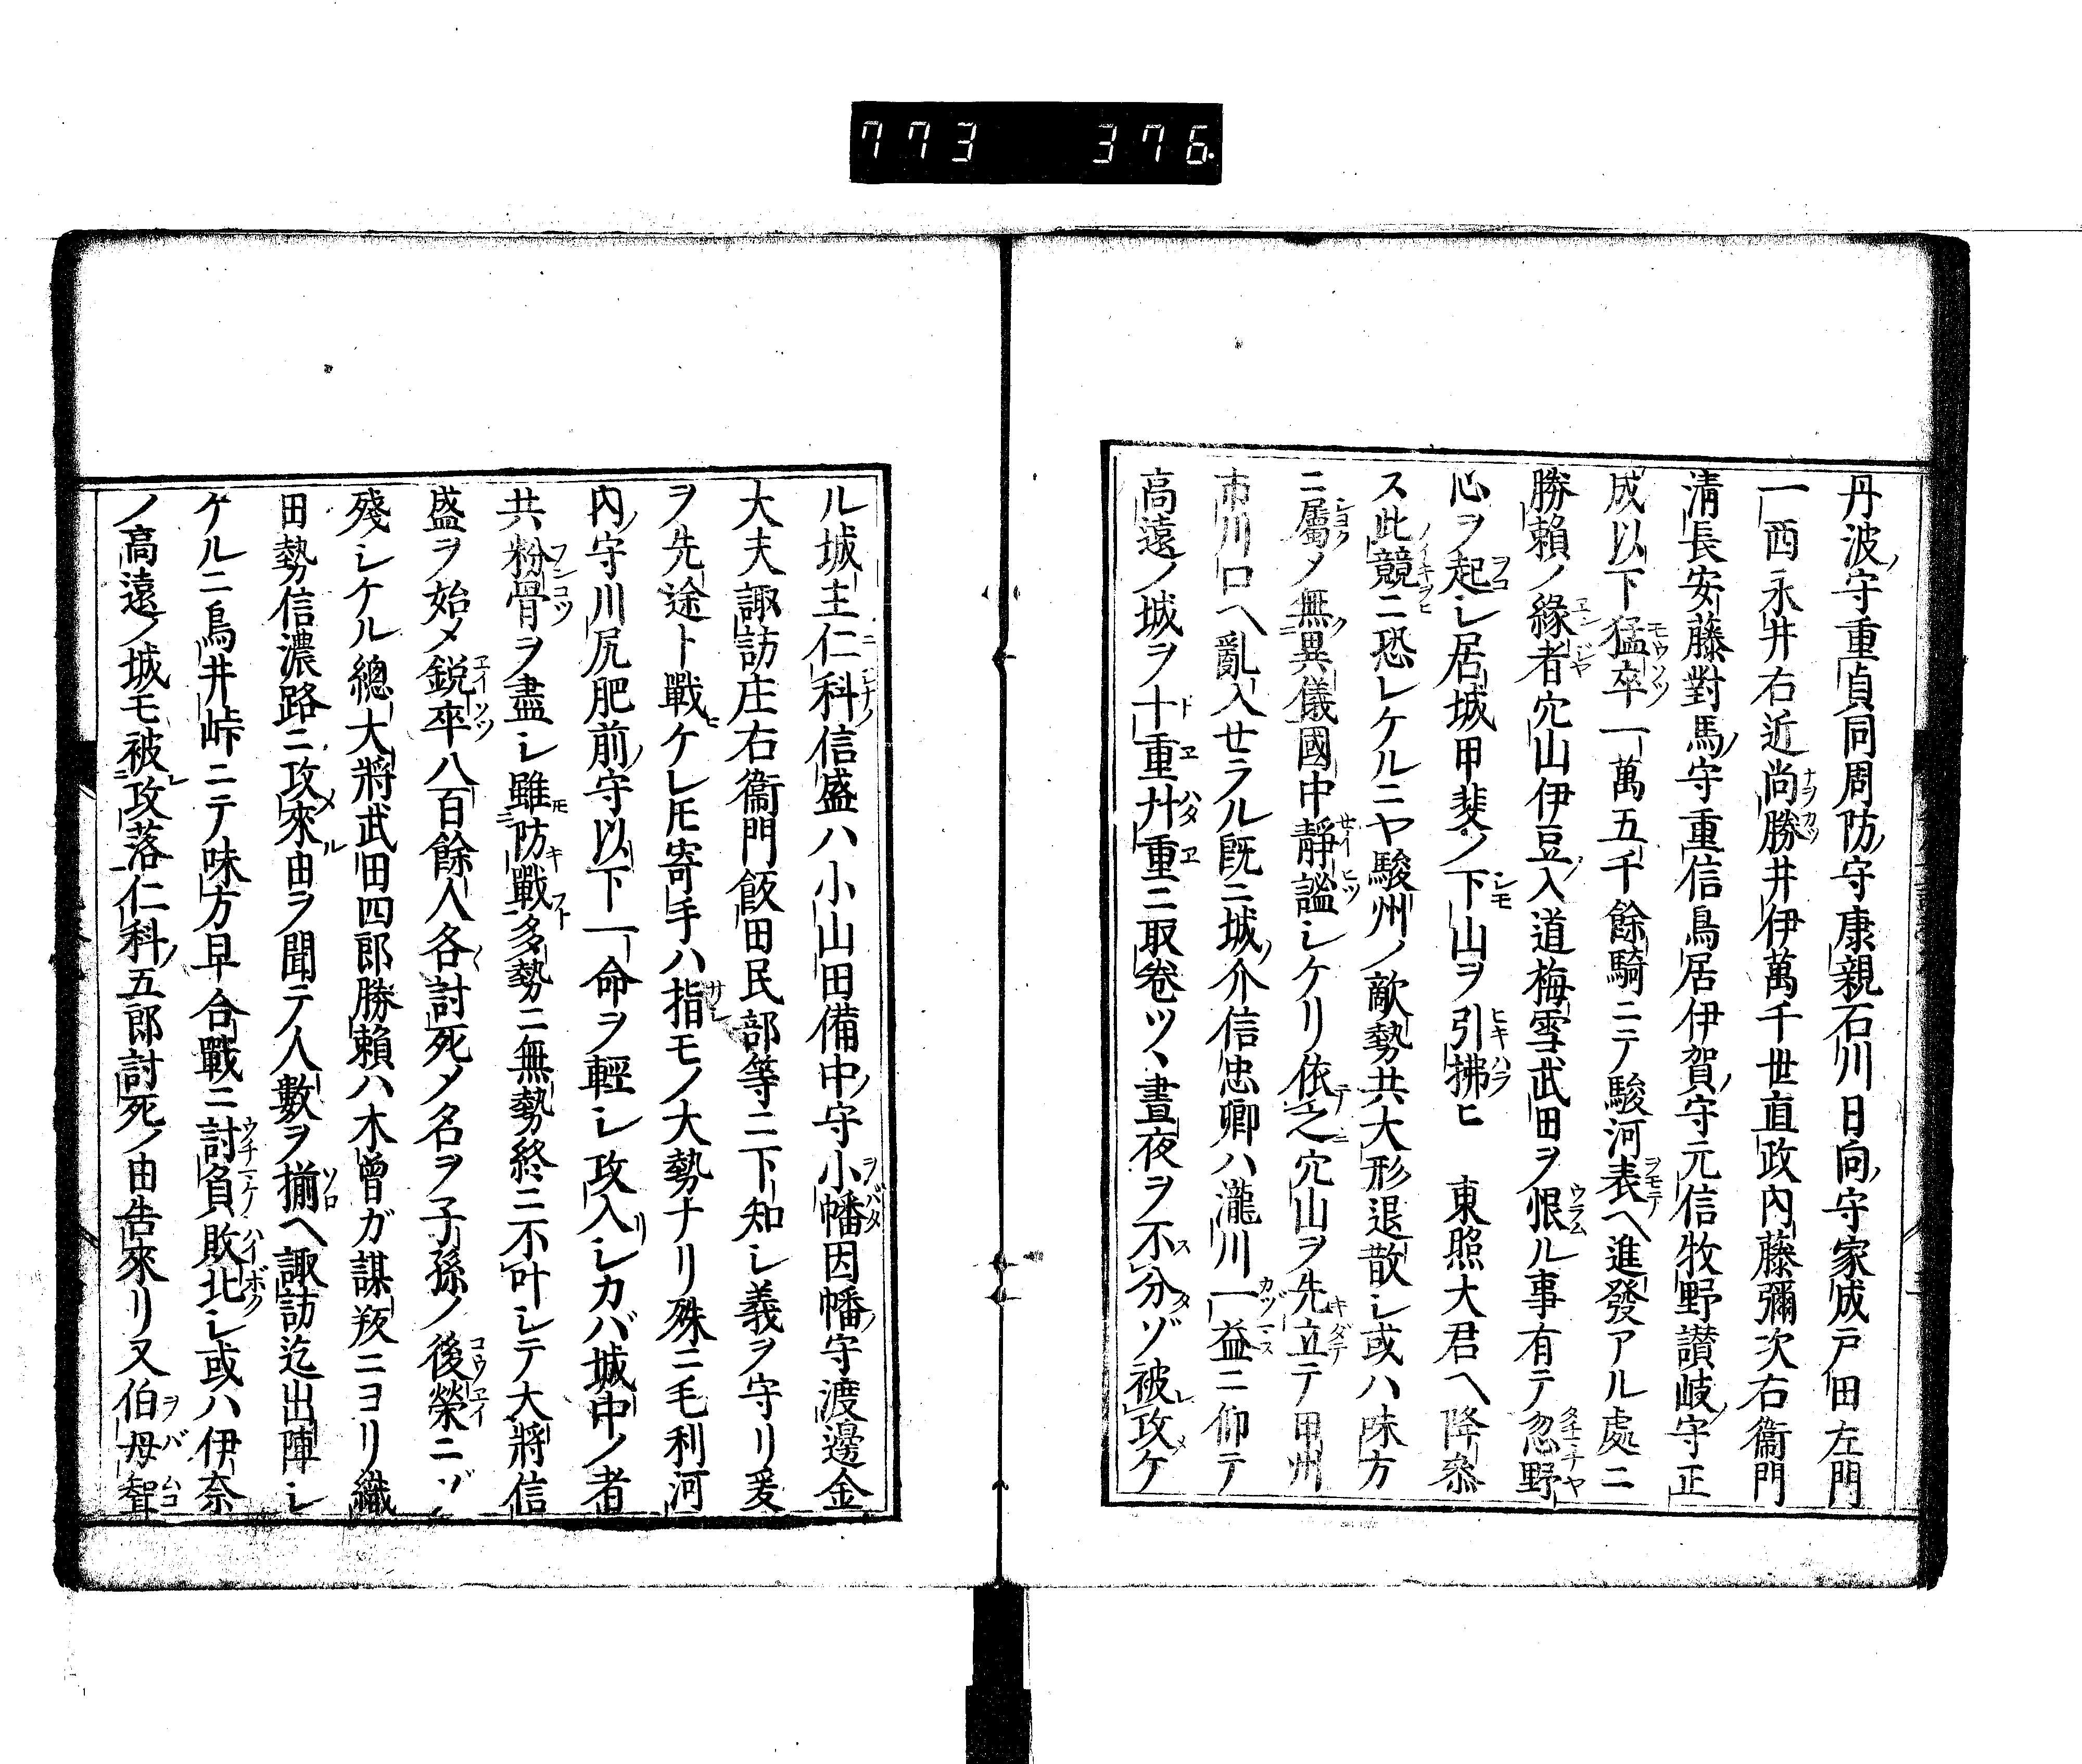 773 376
丹波守重貞同周防守康親石川日向守家成戸田左門
一西永井右近尚勝井伊萬千世直政内藤彌次右衞門
清長安藤對馬守重信鳥居伊賀守元信牧野讃岐守正
成以下猛卒一萬五千餘騎ニテ駿河表ヘ進發アル處ニ
勝賴ノ緣者穴山伊豆入道梅雪武田ヲ恨ル事有テ忽野
心ヲ起シ居城甲斐ノ下山ヲ引拂ヒ　東照大君ヘ降參
ス此競ニ恐レケルニヤ駿州ノ敵勢共大形退散シ或ハ味方
ニ屬メ無異儀國中靜謐シケリ依之穴山ヲ先立テ甲州
市川口ヘ亂入セラル既ニ城介信忠卿ハ瀧川一益ニ仰テ
高遠ノ城ヲ十重廿重ニ取卷ツヽ晝夜ヲ不分ゾ被攻ケ
ル城主仁科信盛ハ小山田備中守小幡因幡守渡邊金
大夫諏訪庄右衞門飯田民部等ニ下知シ義ヲ守リ爰
ヲ先途ト戰ケレ𪜈寄手ハ指モノ大勢ナリ殊ニ毛利河
内守川尻肥前守以下一命ヲ輕シ攻入シカバ城中ノ者
共粉骨ヲ盡シ雖防戰多勢ニ無勢終ニ不叶シテ大將信
盛ヲ始メ鋭卒八百餘人各討死メ名ヲ子孫ノ後榮ニゾ
殘シケル總大將武田四郎勝賴ハ木曾ガ謀叛ニヨリ織
田勢信濃路ニ攻來由ヲ聞テ人數ヲ揃ヘ諏訪迄出陣シ
ケルニ鳥井峠ニテ味方早合戰ニ討負敗北シ或ハ伊奈
ノ高遠ノ城モ被攻落仁科五郎討死ノ由告來リ又伯母聟